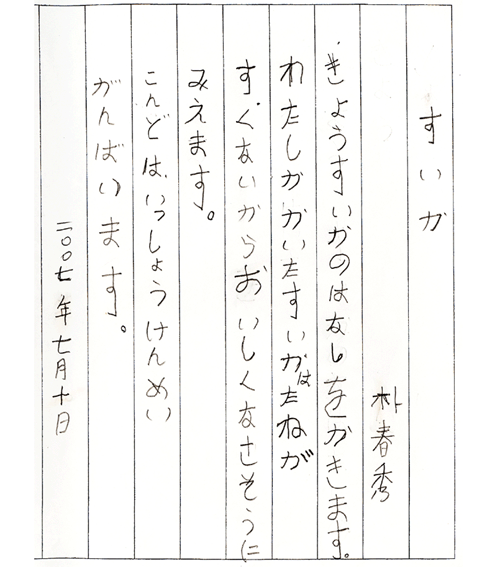 すいか
朴春秀
きょうすいかのはなしをかきます。
わたしがかいたすいかはたねが
すくないからおいしくなさそうに
みえます。
こんどは、いっしょうけんめい
がんばいます。
二〇〇七年七月十日